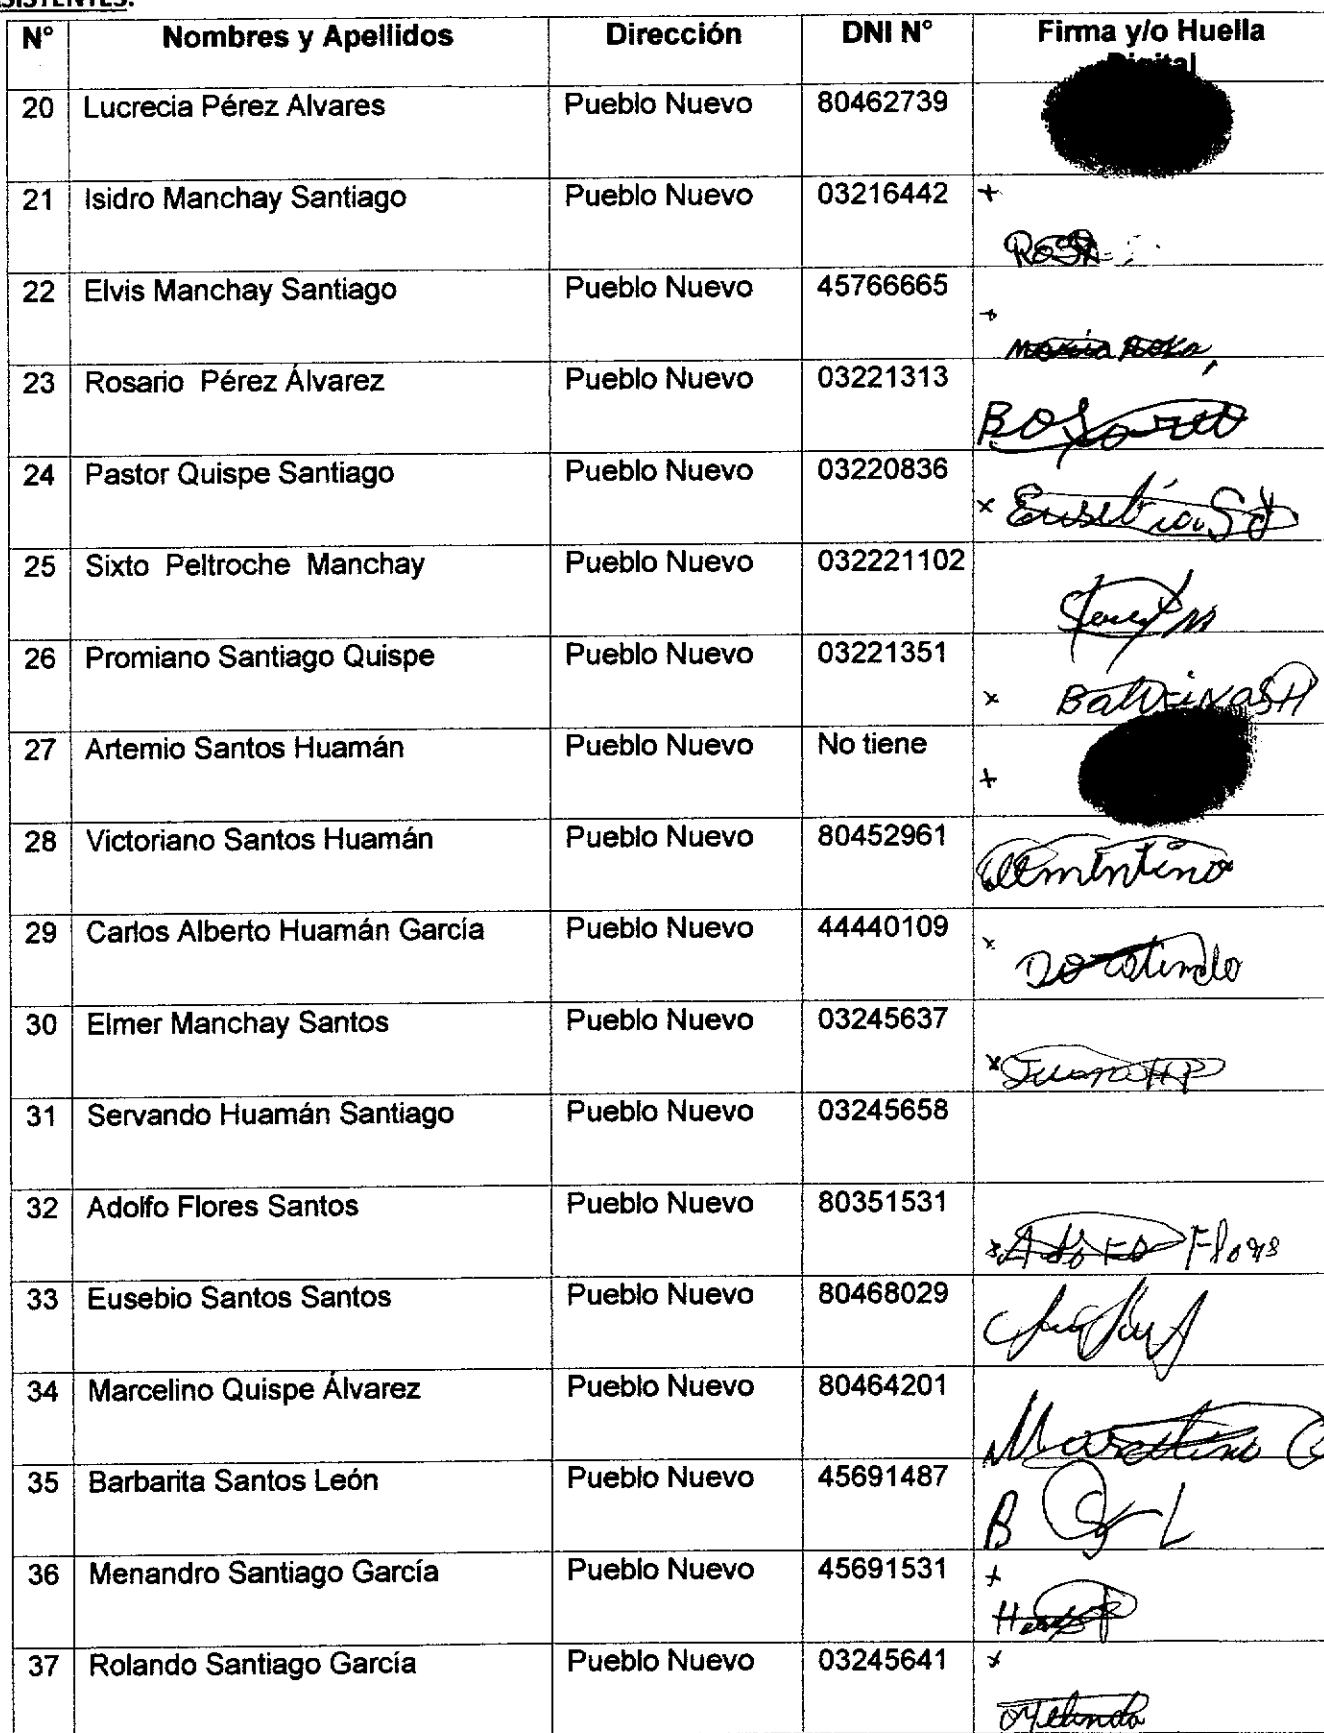 ASISTENTES:
N° Nombres y Apellidos Dirección DNI N° Firma y/o Huella
Digital
20 Lucrecia Pérez Alvares Pueblo Nuevo 80462739
21 Isidro Manchay Santiago Pueblo Nuevo 03216442 +
Rosa
22 Elvis Manchay Santiago Pueblo Nuevo 45766665 +
Maria Rosa
23 Rosario Pérez Álvarez Pueblo Nuevo 03221313
Rosario
24 Pastor Quispe Santiago Pueblo Nuevo 03220836
x Eusebia
25 Sixto Peltroche Manchay Pueblo Nuevo 032221102
26 Promiano Santiago Quispe Pueblo Nuevo 03221351
x
27 Artemio Santos Huamán Pueblo Nuevo No tiene
+
28 Victoriano Santos Huamán Pueblo Nuevo 80452961
29 Carlos Alberto Huamán García Pueblo Nuevo 44440109
x
30 Elmer Manchay Santos Pueblo Nuevo 03245637
x Juana HP
31 Servando Huamán Santiago Pueblo Nuevo 03245658
32 Adolfo Flores Santos Pueblo Nuevo 80351531
x
33 Eusebio Santos Santos Pueblo Nuevo 80468029
34 Marcelino Quispe Álvarez Pueblo Nuevo 80464201
Marcelino Q
35 Barbarita Santos León Pueblo Nuevo 45691487
B S L
36 Menandro Santiago García Pueblo Nuevo 45691531
x
37 Rolando Santiago García Pueblo Nuevo 03245641
x